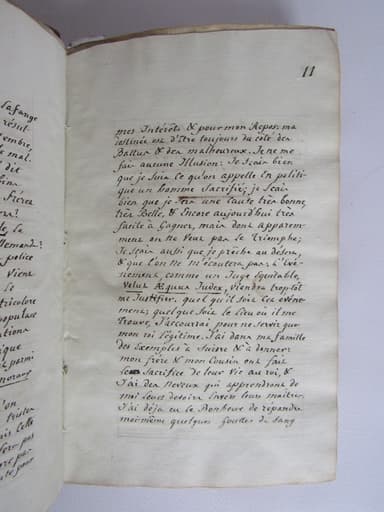 11
mes Intérêts & pour mon Repos: ma
destinée est d'être toujours du côté des
Battus & des malheureux. Je ne me
fais aucune Illusion: Je sçais bien
que je suis ce qu'on appelle en politi-
que un homme Sacrifié; je sçais
bien que je une Cause très bonne,
très Belle, & Encore aujourd'hui très
facile à Gagner, mais dont apparem-
ment on ne veut pas le Triomphe;
Je sçais aussi que je prêche au désert,
& que l'on ne m'écoutera pas; L'évé-
nement, comme un Juge équitable,
velut Æquus Judex, viendra trop tôt
me Justifier. quel qu'il soit cet événe-
ment; quelque soit le lieu où il me
trouve, J'accourrai pour ne servir que
mon roi légitime. J'ai dans ma famille
des Exemples à Suivre & à donner:
mon frère & mon Cousin ont fait
le Sacrifice de leur vie au roi, &
J'ai des Neveux qui apprendront de
moi leurs devoirs Envers leurs maîtres.
J'ai déjà eu le Bonheur de répandre
moi-même quelques Gouttes de Sang